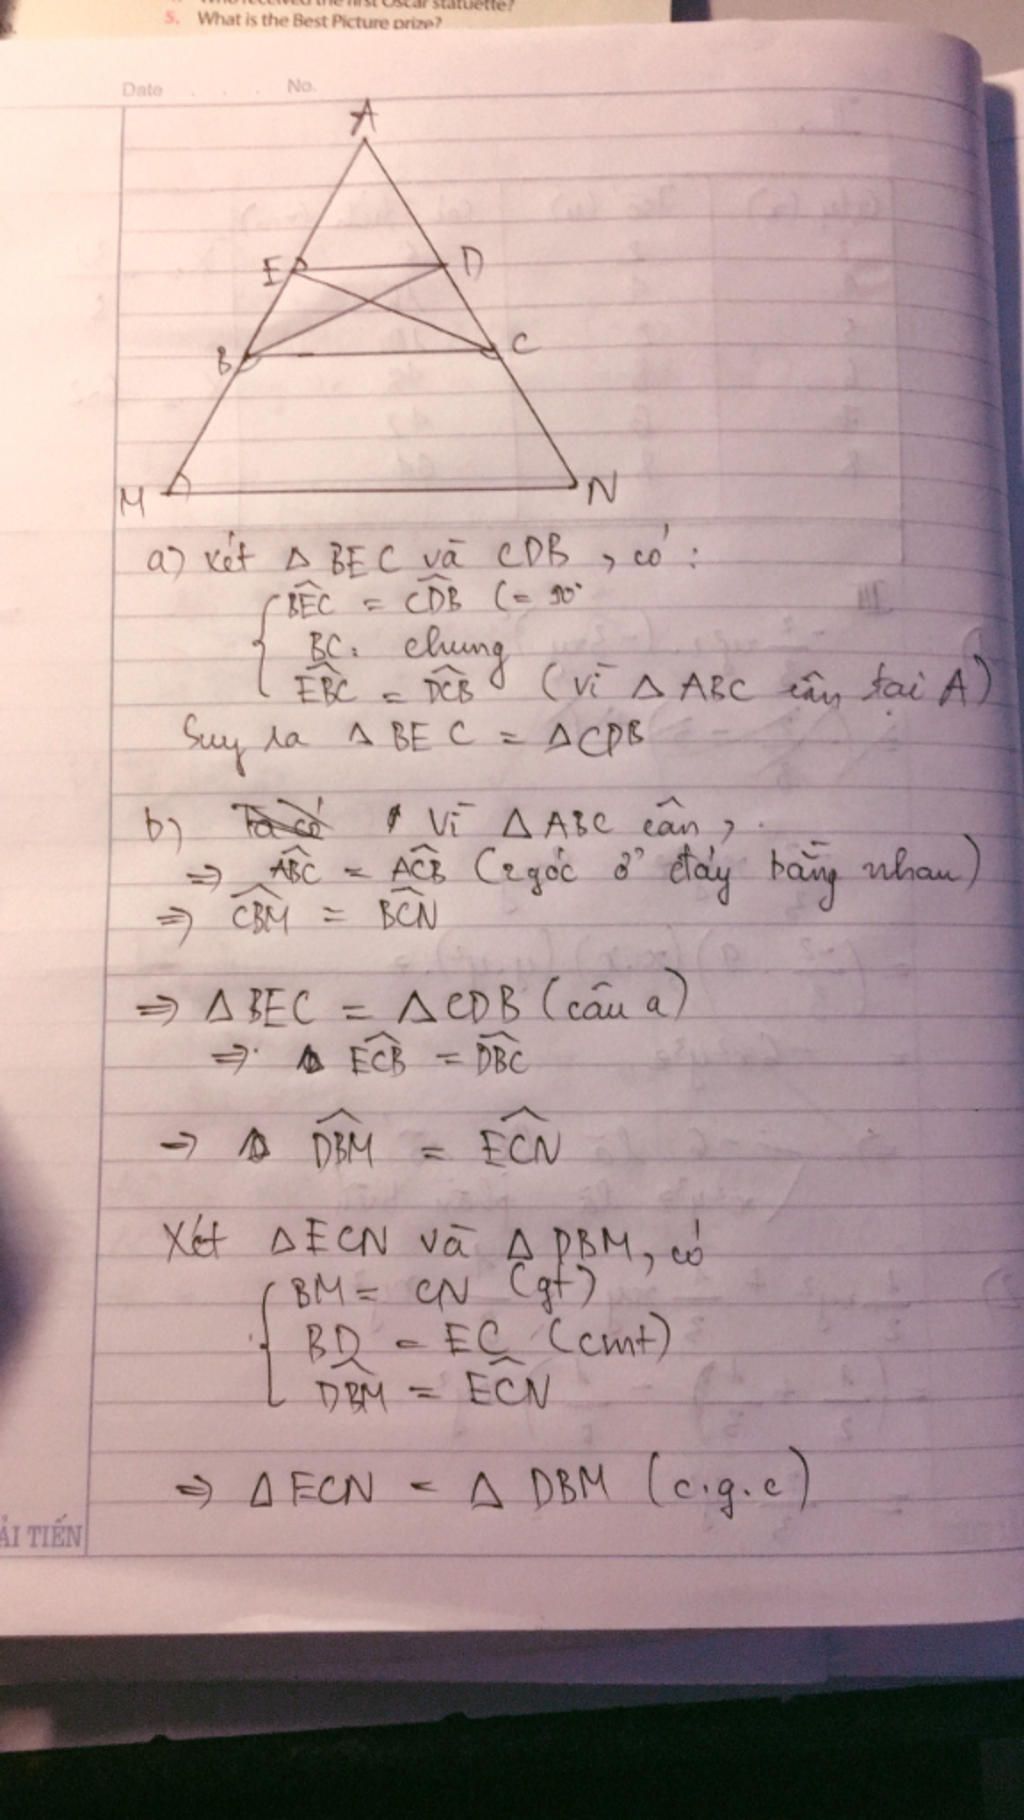 5. What is the Best Picture prize?
Date No.
A
E D
B C
M N
a) Xét Δ BEC và CDB , có :
BEC = CDB (= 90°
BC: chung
EBC = DCB (vì Δ ABC cân tại A)
Suy ra Δ BEC = ΔCDB
b) Ta có Vì Δ ABC cân,
=> ABC = ACB (2 góc ở đáy bằng nhau)
=> CBM = BCN
=> Δ BEC = Δ CDB (câu a)
=> ECB = DBC
=> DBM = ECN
Xét Δ ECN và Δ DBM, có
BM = CN (gt)
BD = EC (cmt)
DBM = ECN
=> Δ ECN = Δ DBM (c.g.c)
ẢI TIẾN